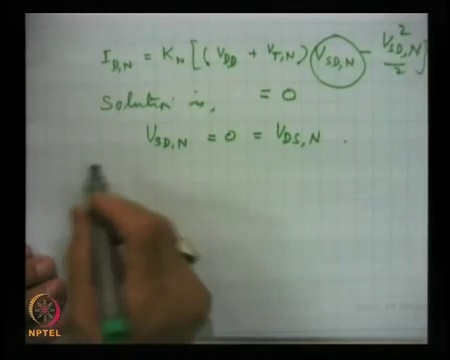 I_{D,N} = K_N [(V_{DD} + V_{T,N}) V_{SD,N} - \frac{V_{SD,N}^2}{2}]
Solution is, = 0
V_{SD,N} = 0 = V_{DS,N} .
NPTEL